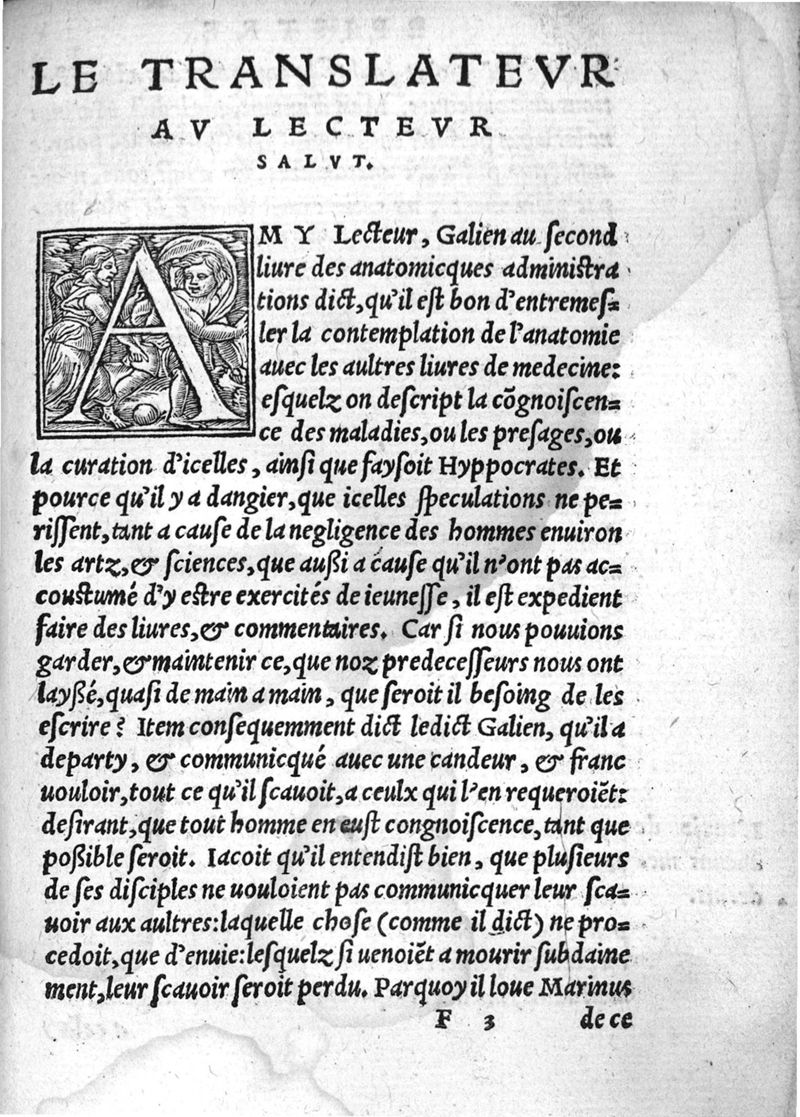 LE TRANSLATEVR
AV LECTEVR
SALVT.
AMY Lecteur, Galien au second
liure des anatomicques administra
tions dict, qu'il est bon d'entremes=
ler la contemplation de l'anatomie
auec les aultres liures de medecine:
esquelz on descript la cõgnoiscen=
ce des maladies, ou les presages, ou
la curation d'icelles, ainsi que faysoit Hyppocrates. Et
pource qu'il y a dangier, que icelles speculations ne pe=
rissent, tant a cause de la negligence des hommes enuiron
les artz, & sciences, que außi a cause qu'il n'ont pas ac=
coustumé d'y estre exercités de ieunesse, il est expedient
faire des liures, & commentaires. Car si nous pouuions
garder, & maintenir ce, que noz predecesseurs nous ont
layßé, quasi de main a main, que seroit il besoing de les
escrire? Item consequemment dict ledict Galien, qu'il a
departy, & communicqué auec une candeur, & franc
uouloir, tout ce qu'il scauoit, a ceulx qui l'en requeroiẽt:
desirant, que tout homme en eust congnoiscence, tant que
poßible seroit. Iacoit qu'il entendist bien, que plusieurs
de ses disciples ne uouloient pas communicquer leur sca=
uoir aux aultres: laquelle chose (comme il dict) ne pro=
cedoit, que d'enuie: lesquelz si uenoiẽt a mourir subdaine
ment, leur scauoir seroit perdu. Parquoy il loue Marinus
F 3 de ce